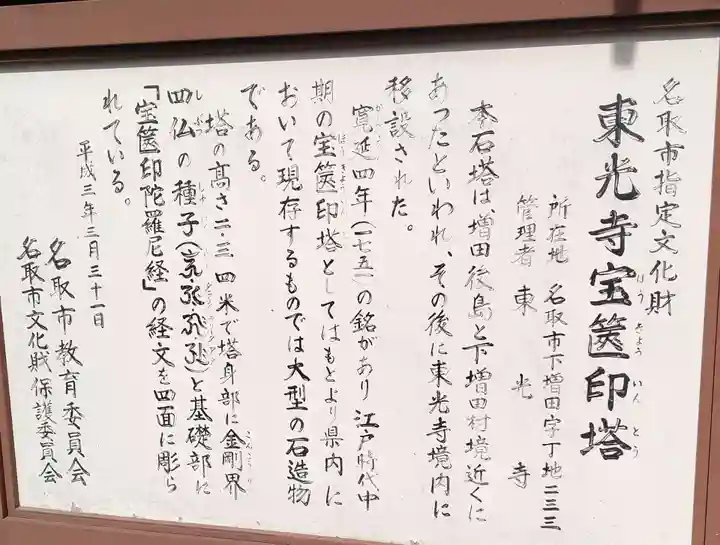 名取市指定文化財
東光寺宝篋印塔
ほう きょう いん とう
所在地 名取市下増田字丁地二三三
管理者 東光寺
本石塔は、増田後島と下増田村境近くに
あったといわれ、その後に東光寺境内に
移設された。
寛延四年(一七五一)の銘があり江戸時代中
期の宝篋印塔としてはもとより県内に
おいて現存するものでは大型の石造物
である。
塔の高さ二・三四米で塔身部に金剛界
四仏の種子()と基礎部に
「宝篋印陀羅尼経」の経文を四面に彫ら
れている。
平成三年三月三十一日
名取市教育委員会
名取市文化財保護委員会